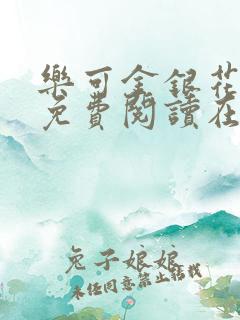 樂可金銀花
免費閱讀在
兔子娘娘
未經同意禁止轉載